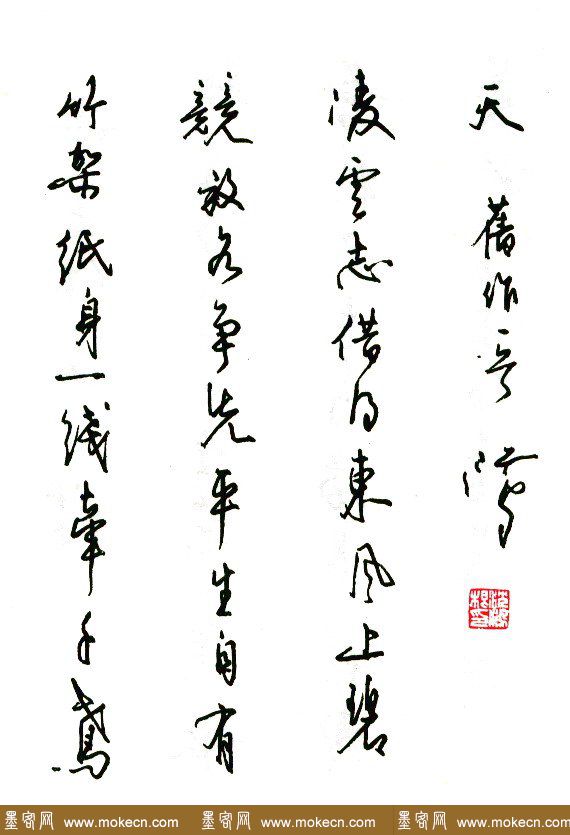 竹架紙身一线牵千鳶
競放各争先平生自有
凌雲志借得東風上碧
天 舊作
墨客网 www.mokecn.com 墨客网 www.mokecn.com 墨客网 www.mokecn.com